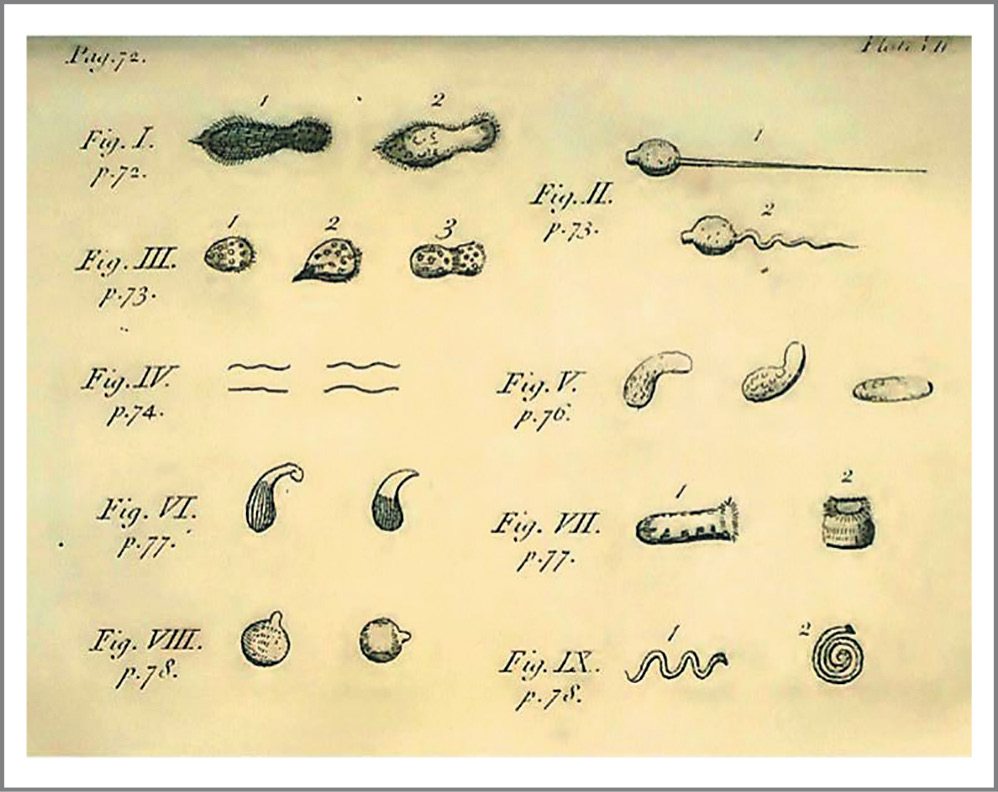 Pag. 72.
Plate
1 2
Fig. I.
p. 72.
1
Fig. II.
p. 73.
2
1 2 3
Fig. III.
p. 73.
Fig. IV.
p. 74.
Fig. V.
p. 76.
Fig. VI.
p. 77.
1 2
Fig. VII.
p. 77.
Fig. VIII.
p. 78.
1 2
Fig. IX.
p. 78.